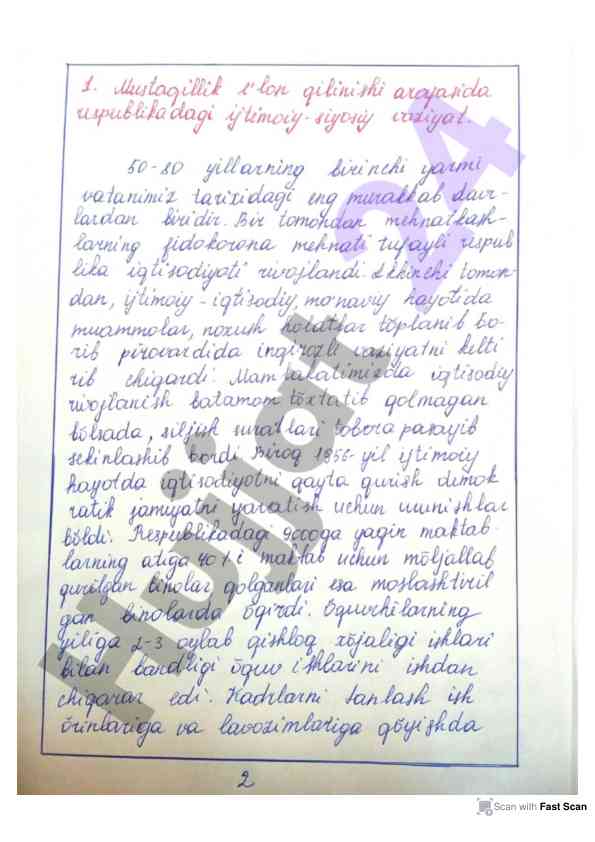 1. Mustaqillik e'lon qilinishi arafasida
respublikadagi ijtimoiy-siyosiy vaziyat.
50-80 yillarning birinchi yarmi
vatanimiz tarixidagi eng murakkab davr-
lardan biridir. Bir tomondan mehnatkash-
larning fidokorona mehnati tufayli respub
lika iqtisodiyoti rivojlandi. Ikkinchi tomon-
dan, ijtimoiy-iqtisodiy, ma'naviy hayotida
muammolar, noxush holatlar tŏplanib bo-
rib pirovardida inqirozli vaziyatni kelti
rib chiqardi. Mamlakatimizda iqtisodiy
rivojlanish batamom tŏxtatib qolmagan
bŏlsada, siljish suratlari tobora pasayib
sekinlashib bordi. Biroq 1856-yil ijtimoiy
hayotda iqtisodiyotni qayta qurish demok
ratik jamiyatni yaratish uchun urinishlar
bŏldi. Respublikadagi 9000ga yaqin maktab-
larning atiga 40%i maktab uchun mŏljallab
qurilgan binolar qolganlari esa moslashtiril
gan binolarda ŏqirdi. Ŏquvchilarning
yiliga 2-3 oylab qishloq xŏjaligi ishlari
bilan bandligi ŏquv ishlarini ishdan
chiqarar edi. Kadrlarni tanlash ish
ŏrinlariga va lavozimlariga qŏyishda
2
Hujjat 24
Scan with Fast Scan